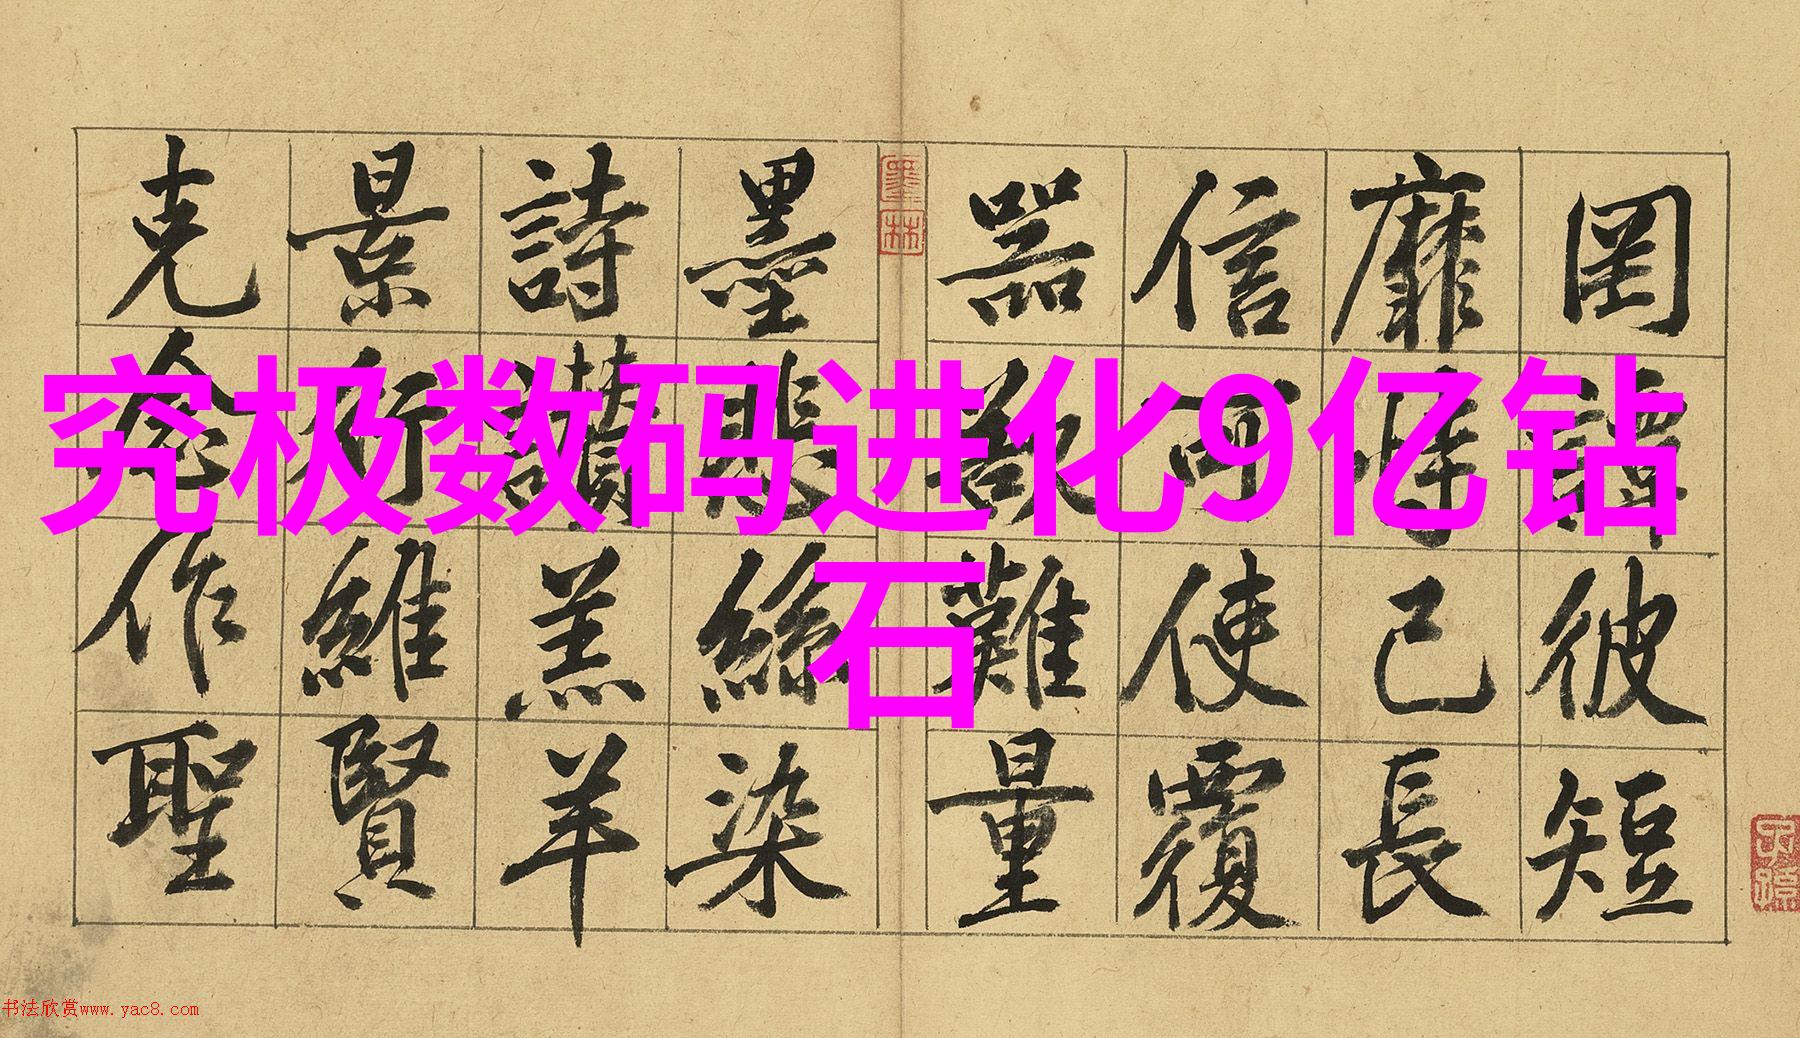 究极数码进化9亿钻
石
罔彼短
靡恃己長
信可使覆
器欲難量
墨悲絲染
詩讚羔羊
景行維賢
克念作聖
墨林
书法欣赏www.yac8.com